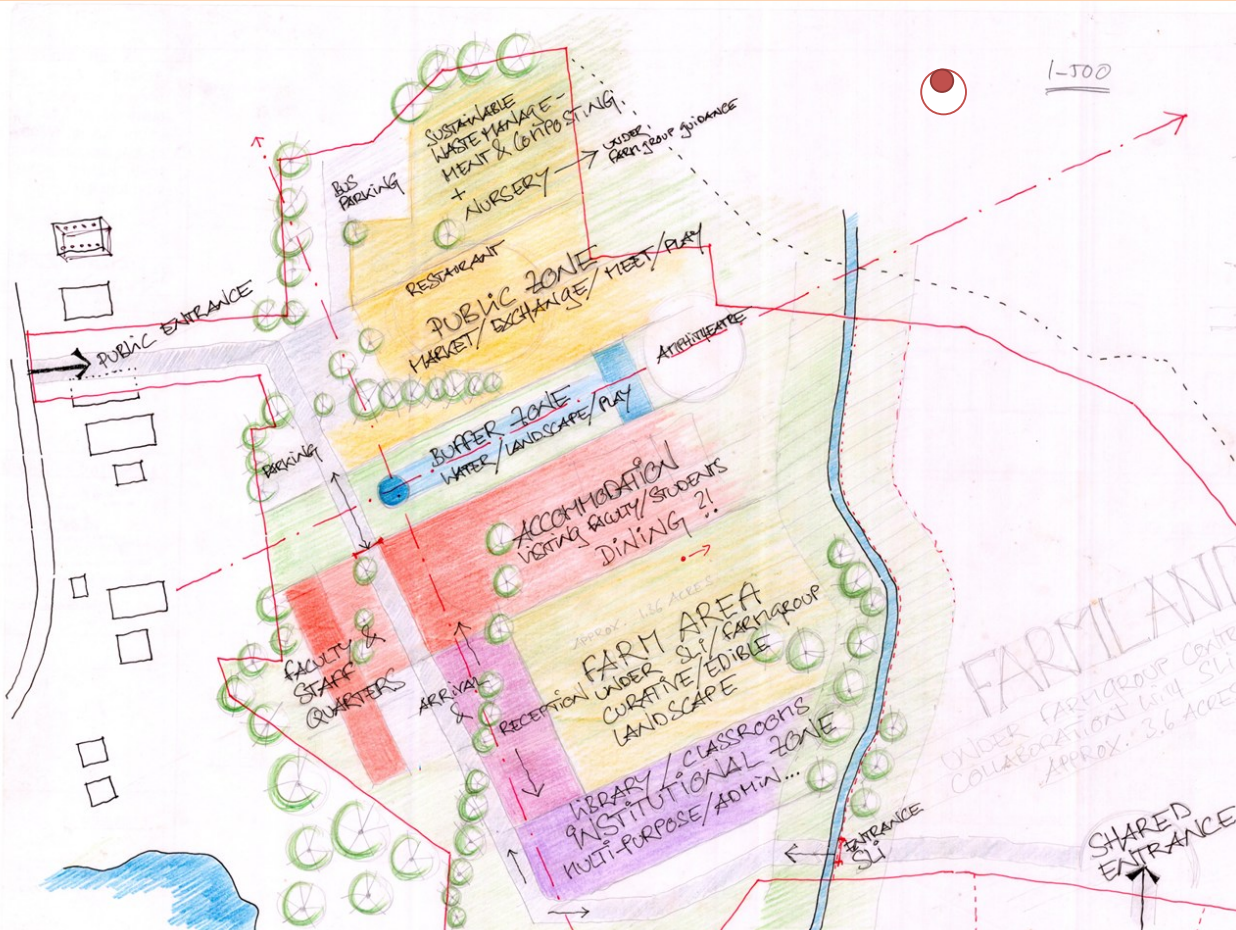 1-500
SUSTAINABLE
WASTE MANAGE-
MENT & COMPOSTING.
+
NURSERY
UNDER
FARMGROUP GUIDANCE
BUS
PARKING
RESTAURANT
PUBLIC ZONE
MARKET/EXCHANGE/MEET/PLAY
PUBLIC ENTRANCE
AMPHITHEATRE
BUFFER ZONE
WATER/LANDSCAPE/PLAY
PARKING
ACCOMMODATION
VISITING FACULTY/STUDENTS
DINING ?!
APPROX. 1.36 ACRES
FARM AREA
UNDER SLI/FARMGROUP
CURATIVE/EDIBLE
LANDSCAPE
FACULTY &
STAFF
QUARTERS
ARRIVAL
&
RECEPTION
LIBRARY/CLASSROOMS
INSTITUTIONAL ZONE
MULTI-PURPOSE/ADMIN...
FARMLAND
UNDER FARMGROUP
COLLABORATION WITH SLI
APPROX. 3.6 ACRES
ENTRANCE
SLI
SHARED
ENTRANCE